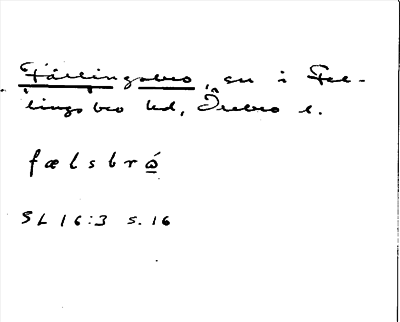 Fällingsbro, sn i Fel-
lingsbro hd, Örebro l.
fælsbrώ̲
SL 16:3 s. 16